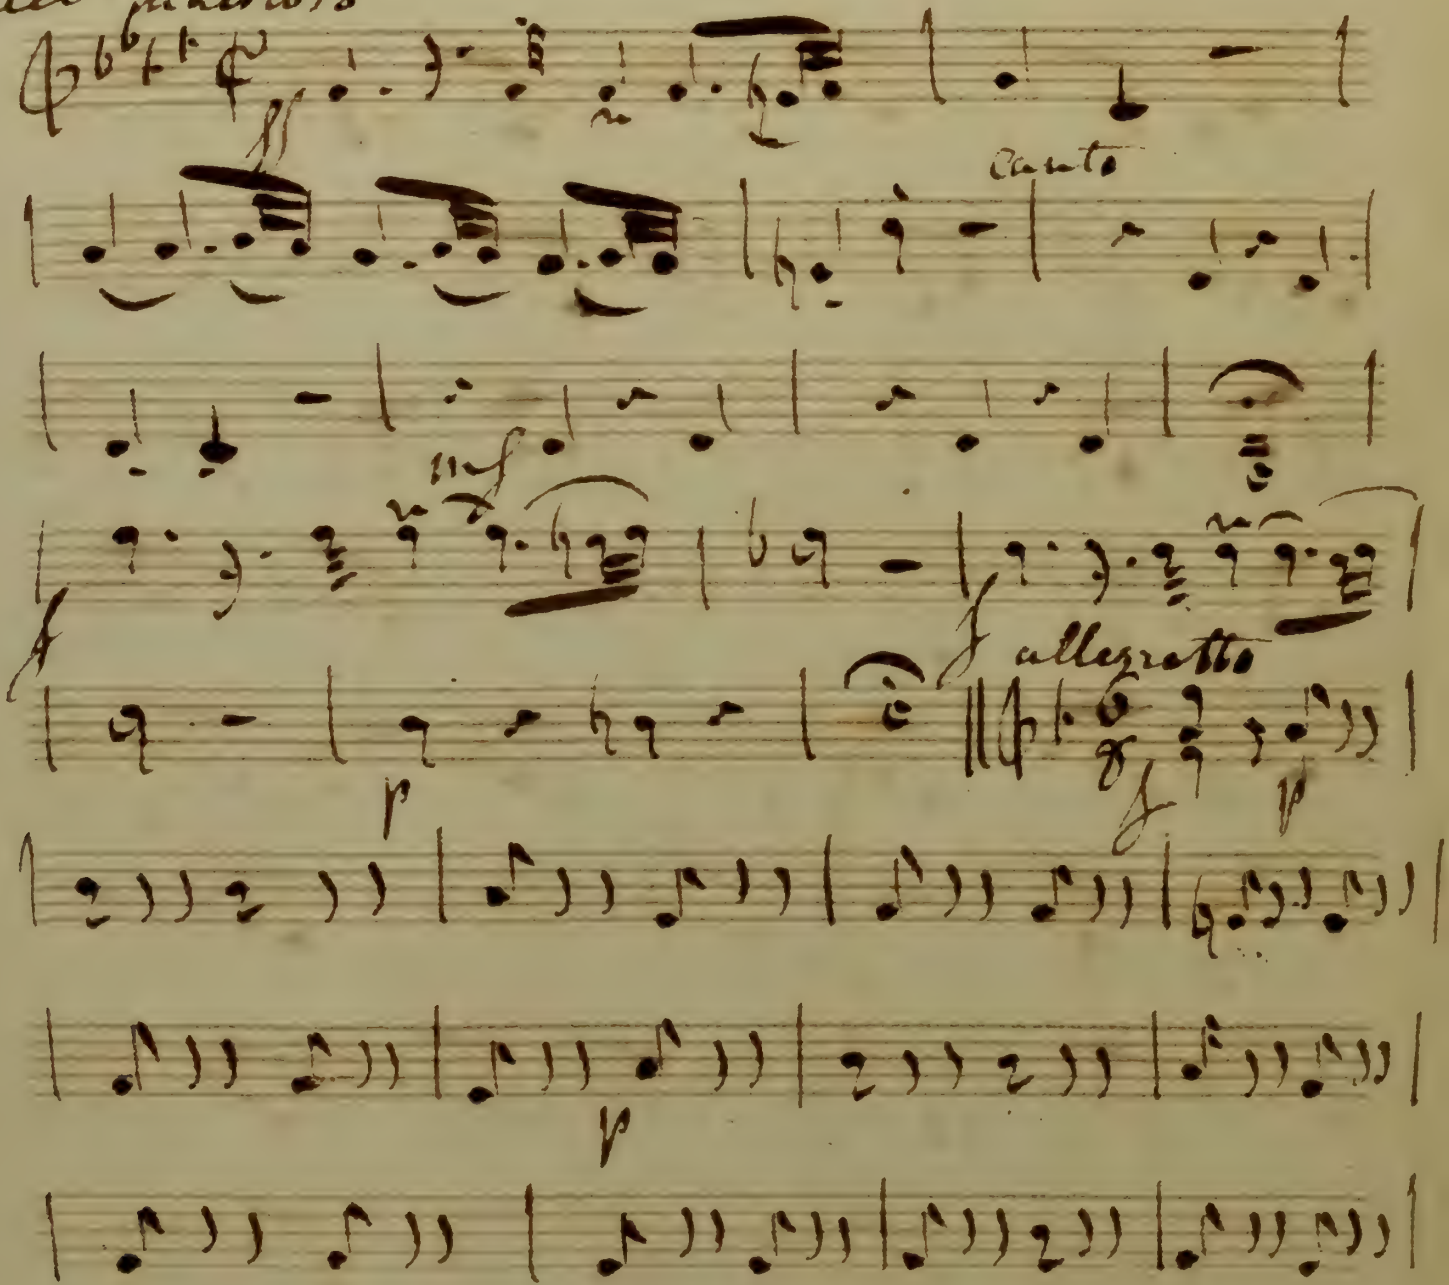 ff
canto
mf
f
f allegretto
p
6
8
f p
p